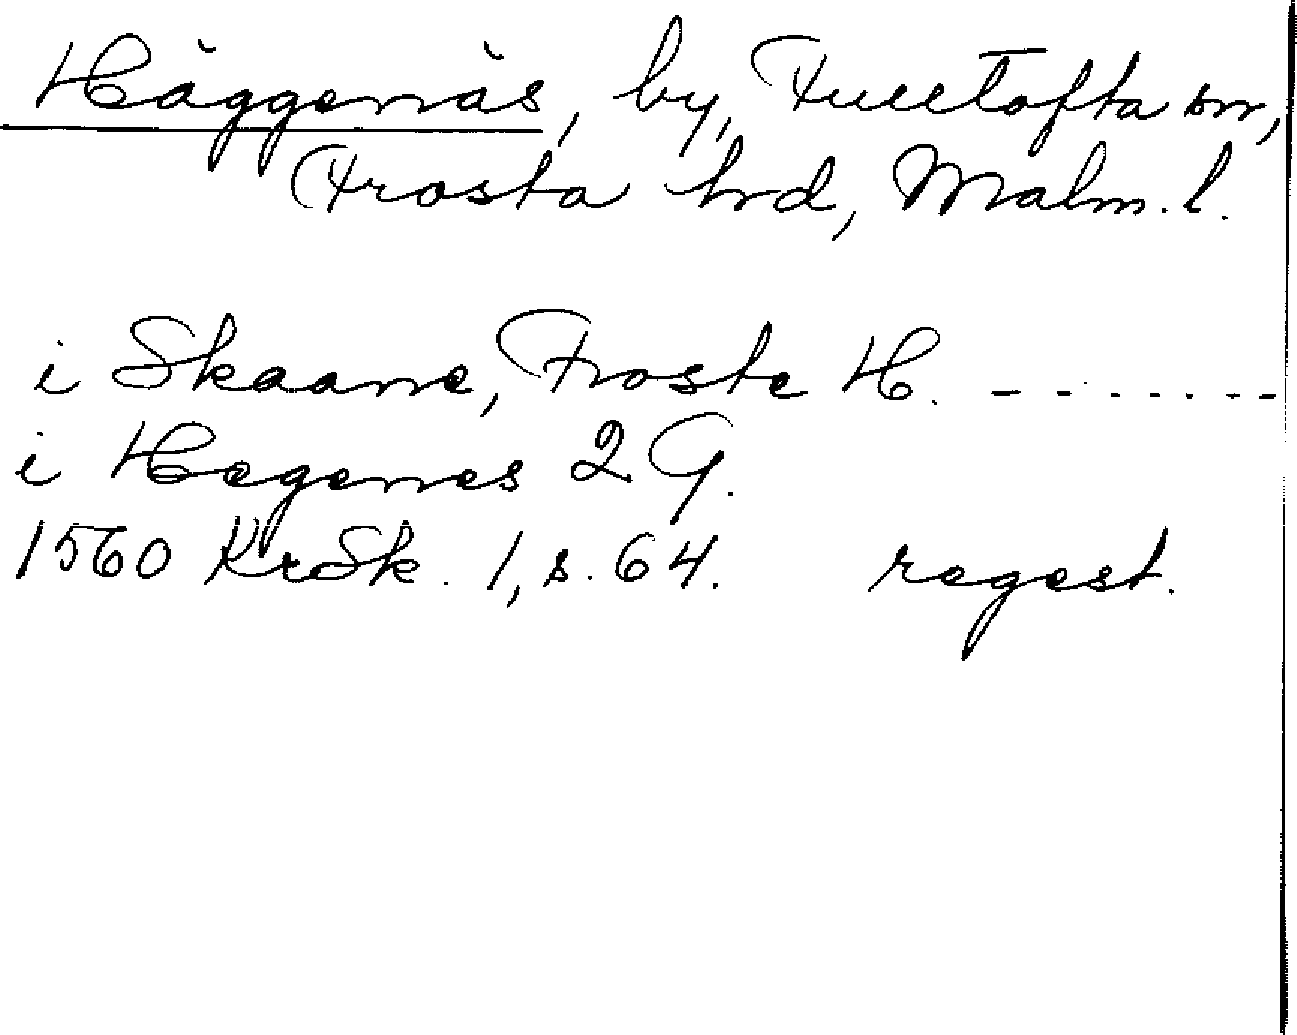 Häggenäs, by, Fulltofta sn,
Frosta hrd, Malm. l.
i Skaane, Froste H. - - - - - - -
i Hegenes 2 G.
1560 KrSk. 1, s. 64. regest.